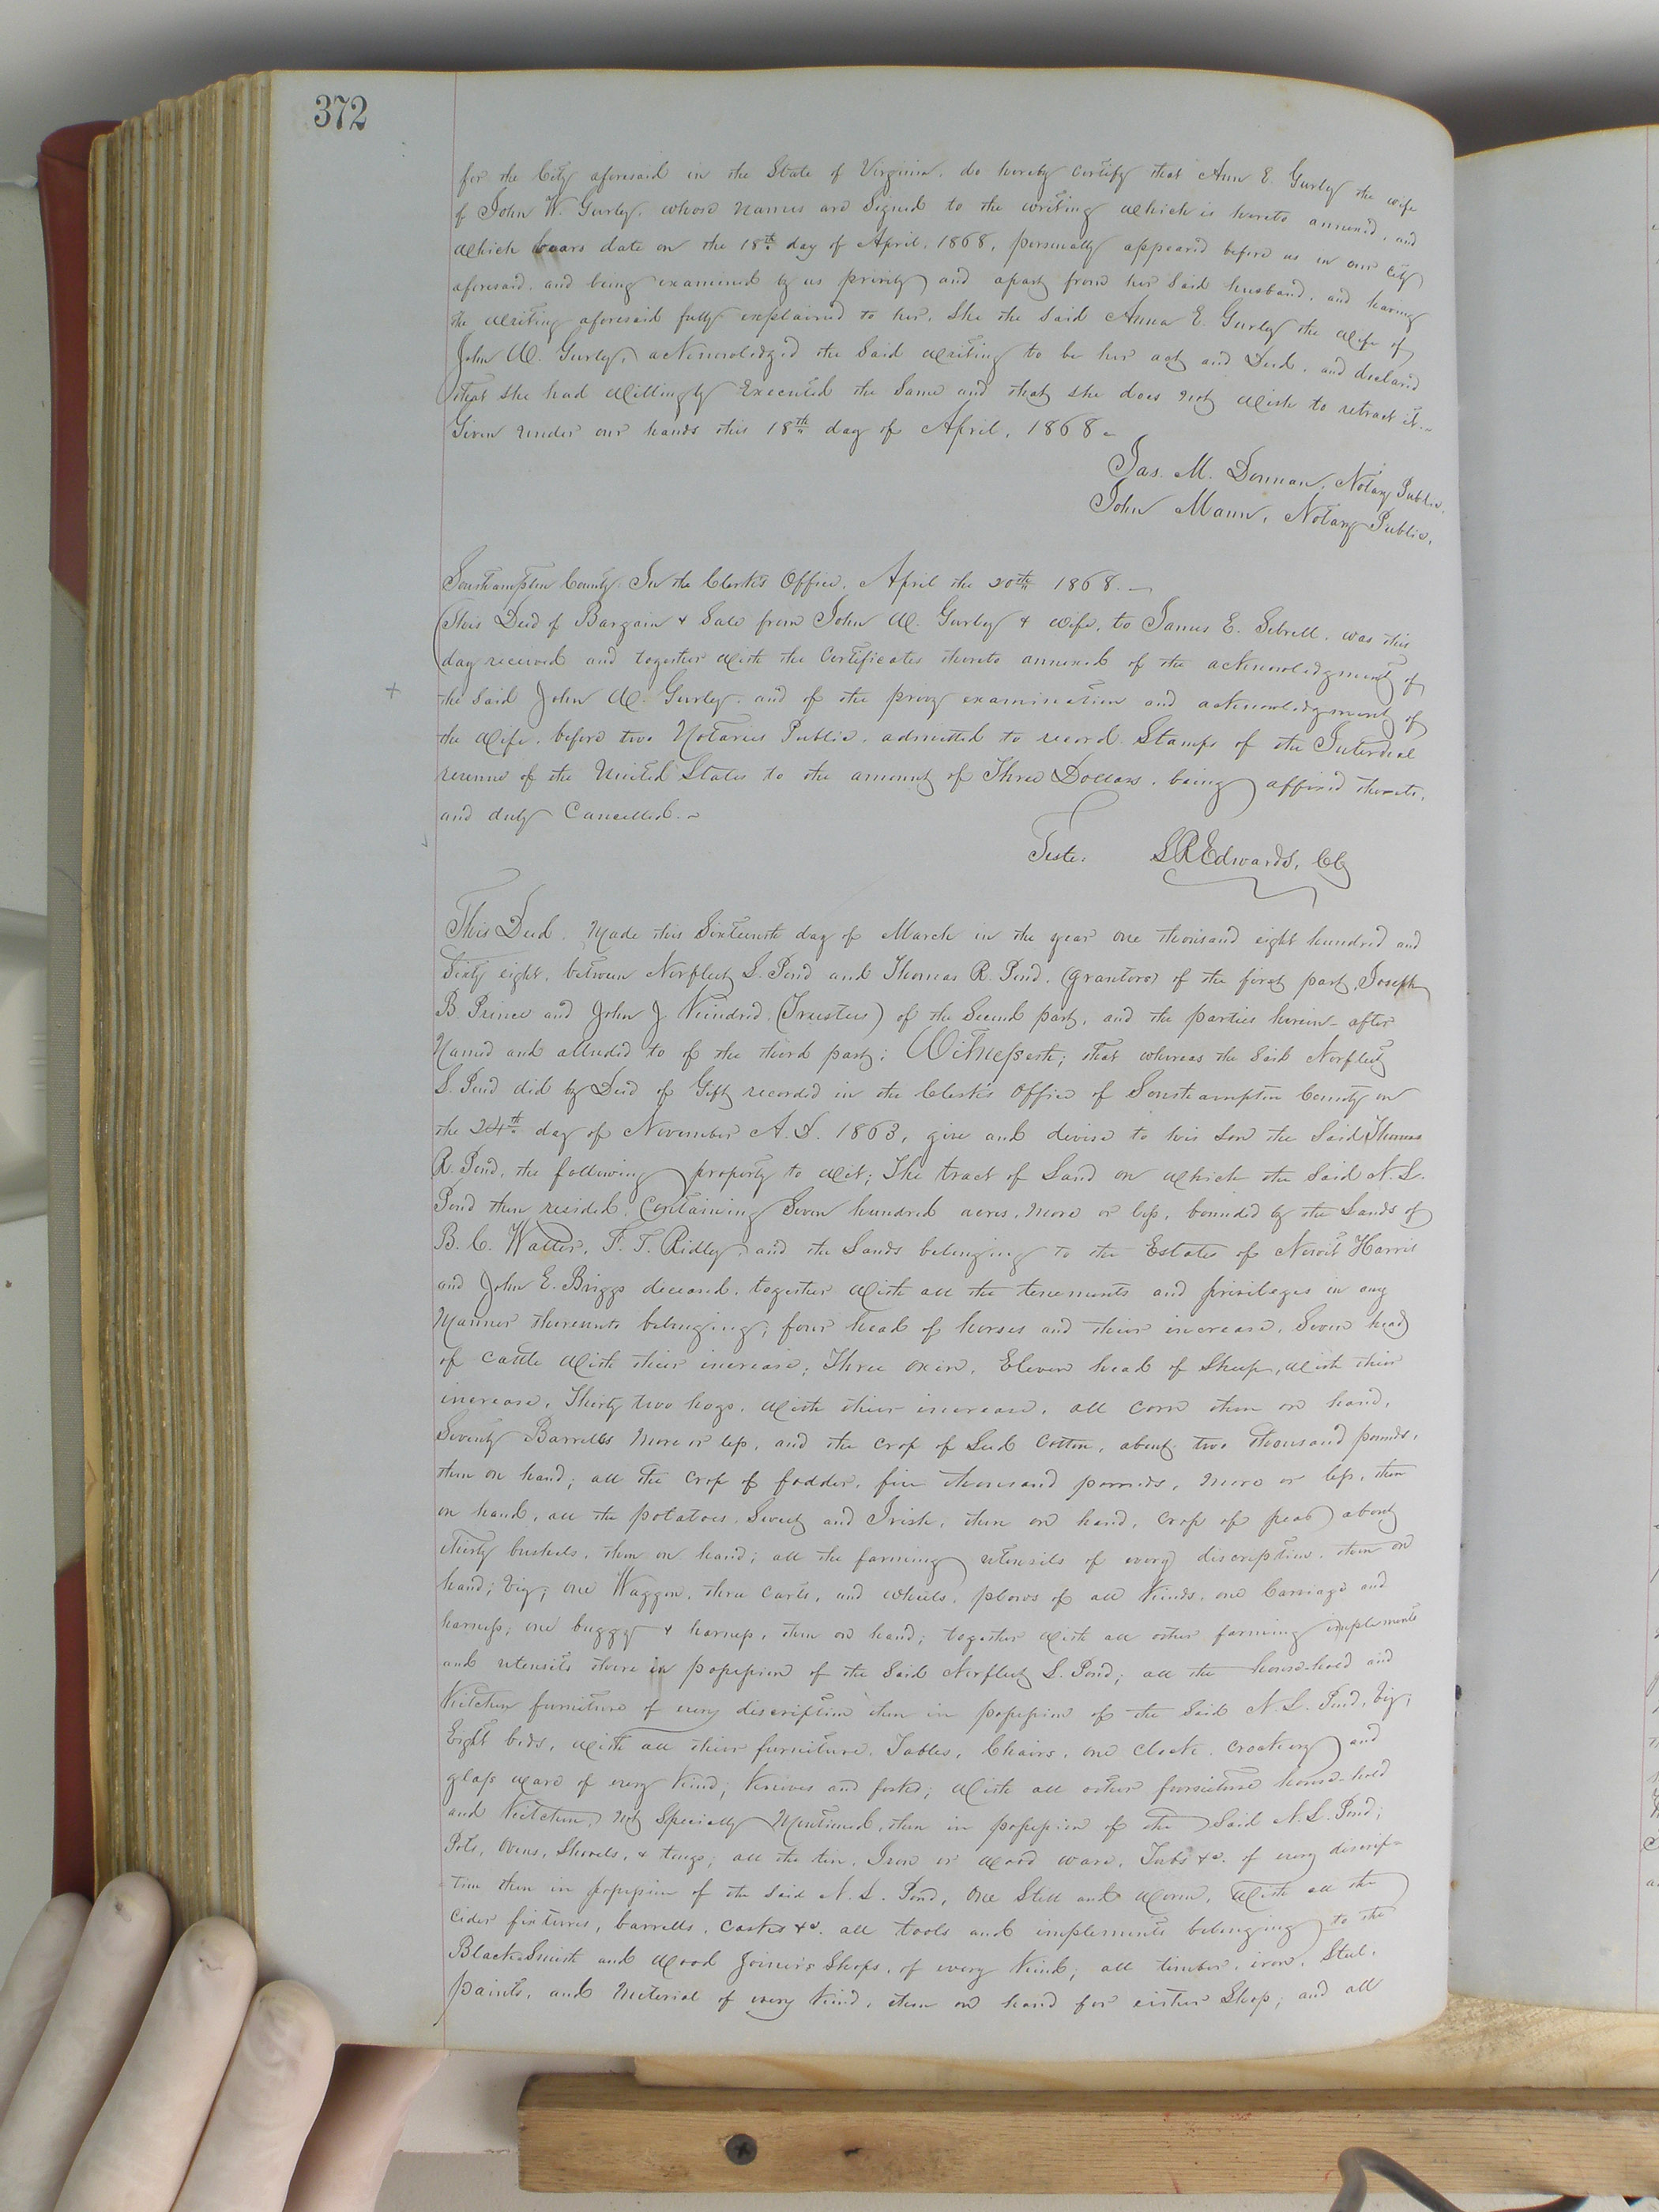 372
for the City aforesaid in the State of Virginia, do hereby certify that Ann E. Gurley the wife
of John W. Gurley, whose names are signed to the writing which is hereto annexed, and
which bears date on the 18th day of April, 1868, personally appeared before us in our City
aforesaid, and being examined by us privily and apart from her said husband, and having
the writing aforesaid fully explained to her, she the said Anna E. Gurley the wife of
John W. Gurley, acknowledged the said writing to be her act and Deed, and declared
that she had willingly executed the same and that she does not wish to retract it.
Given under our hands this 18th day of April, 1868.
Jas. M. Donnan, Notary Public.
John Mann, Notary Public.
Southampton County. In the Clerk's Office, April the 20th 1868.
This Deed of Bargain & Sale from John W. Gurley & wife, to James E. Sebrell, was this
day received and together with the Certificates thereto annexed of the acknowledgment of
+ the said John W. Gurley, and of the privy examination and acknowledgment of
the wife, before two Notaries Public, admitted to record. Stamps of the Internal
revenue of the United States to the amount of Three Dollars, being affixed thereto,
and duly Cancelled.
Teste. L R Edwards, CC
This Deed, Made this Sixteenth day of March in the year one thousand eight hundred and
Sixty eight, between Norfleet S. Pond and Thomas R. Pond, (grantors) of the first part, Joseph
B. Prince and John J. Kindred (Trustees) of the Second part, and the parties herein-after
Named and alluded to of the third part; Witnesseth; that whereas the said Norfleet
S. Pond did by Deed of Gift recorded in the Clerk's Office of Southampton County on
the 24th day of November A.D. 1863, give and devise to his son the said Thomas
R. Pond, the following property to wit; The tract of Land on which the said N. S.
Pond then resided, Containing Seven hundred acres, more or less, bounded by the Lands of
B. C. Waller, F. T. Ridley, and the Lands belonging to the Estates of Newit Harris
and John E. Briggs deceased, together with all the tenements and privileges in any
Manner thereunto belonging; four head of horses and their increase, Seven head
of cattle with their increase; Three oxen, Eleven head of Sheep, with their
increase, Thirty two hogs, with their increase, all corn then on hand,
Seventy Barrells more or less, and the crop of Seed Cotton, about two thousand pounds,
then on hand; all the crop of fodder, five thousand pounds, more or less, then
on hand, all the potatoes, Sweet and Irish, then on hand, crop of peas about
thirty bushels, then on hand; all the farming utensils of every discription, then on
hand; viz; one Waggon, three carts, and wheels, plows of all Kinds, one Carriage and
harness; one buggy & harness, then on hand; together with all other farming implements
and utensils there in possession of the said Norfleet S. Pond; all the house-hold and
Kitchen furniture of every discription then in possession of the said N. S. Pond, viz;
Eight beds, with all their furniture, Tables, Chairs, one clock, crockery and
glass ware of every Kind; Knives and forks; with all other furniture house-hold
and Kitchen, not Specially Mentioned, then in possession of the said N. S. Pond;
Pots, Ovens, Shovels, & tongs; all the tin, Iron or wood ware, Tubs &c. of every discrip-
tion then in possession of the said N. S. Pond, One Still and worm, with all the
Cider fixtures, barrells, Casks &c. all tools and implements belonging to the
Black-Smith and Wood Joiner's Shops, of every Kind; all timber, iron, Steel,
paints, and Material of every Kind, then on hand for either Shop; and all